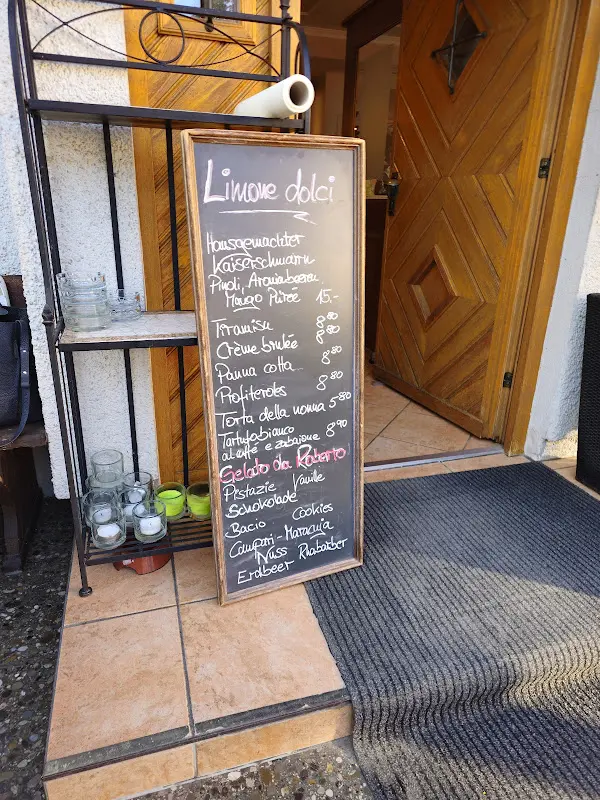 Limone dolci
Hausgemachter
Kaiserschmarrn
Pinoli, Aroniabeeren
Mango Püree 15.-
Tiramisu 8.80
Crème brulée 8.80
Panna cotta
Profiteroles 8.80
Torta della nonna 5.80
Tartufobianco
al caffè e zabaione 8.90
Gelato da Roberto
Pistazie Vanille
Schokolade
Bacio Cookies
Campari-Maracuja
Nuss
Erdbeer Rhabarber